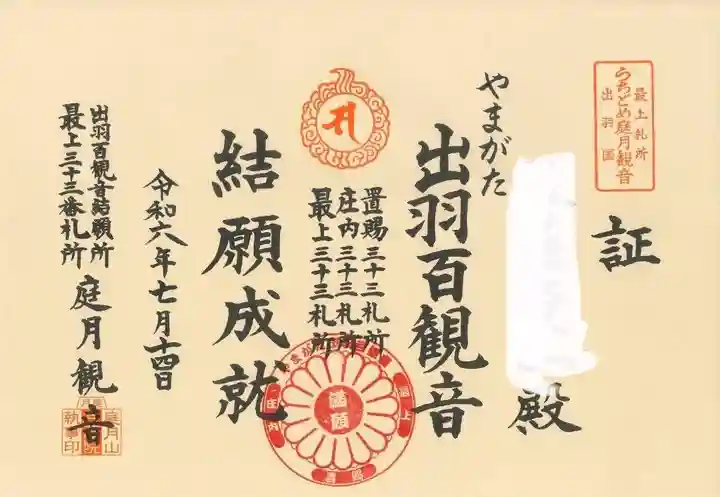 最上札所
うちどめ庭月観音
出羽国
証
殿
やまがた
出羽百観音
置賜三十三札所
庄内三十三札所
最上三十三札所
結願成就
令和六年七月十四日
出羽百観音結願所
最上三十三番札所
庭月観音
満願
最上
庄内
置賜
庭月山
執事印